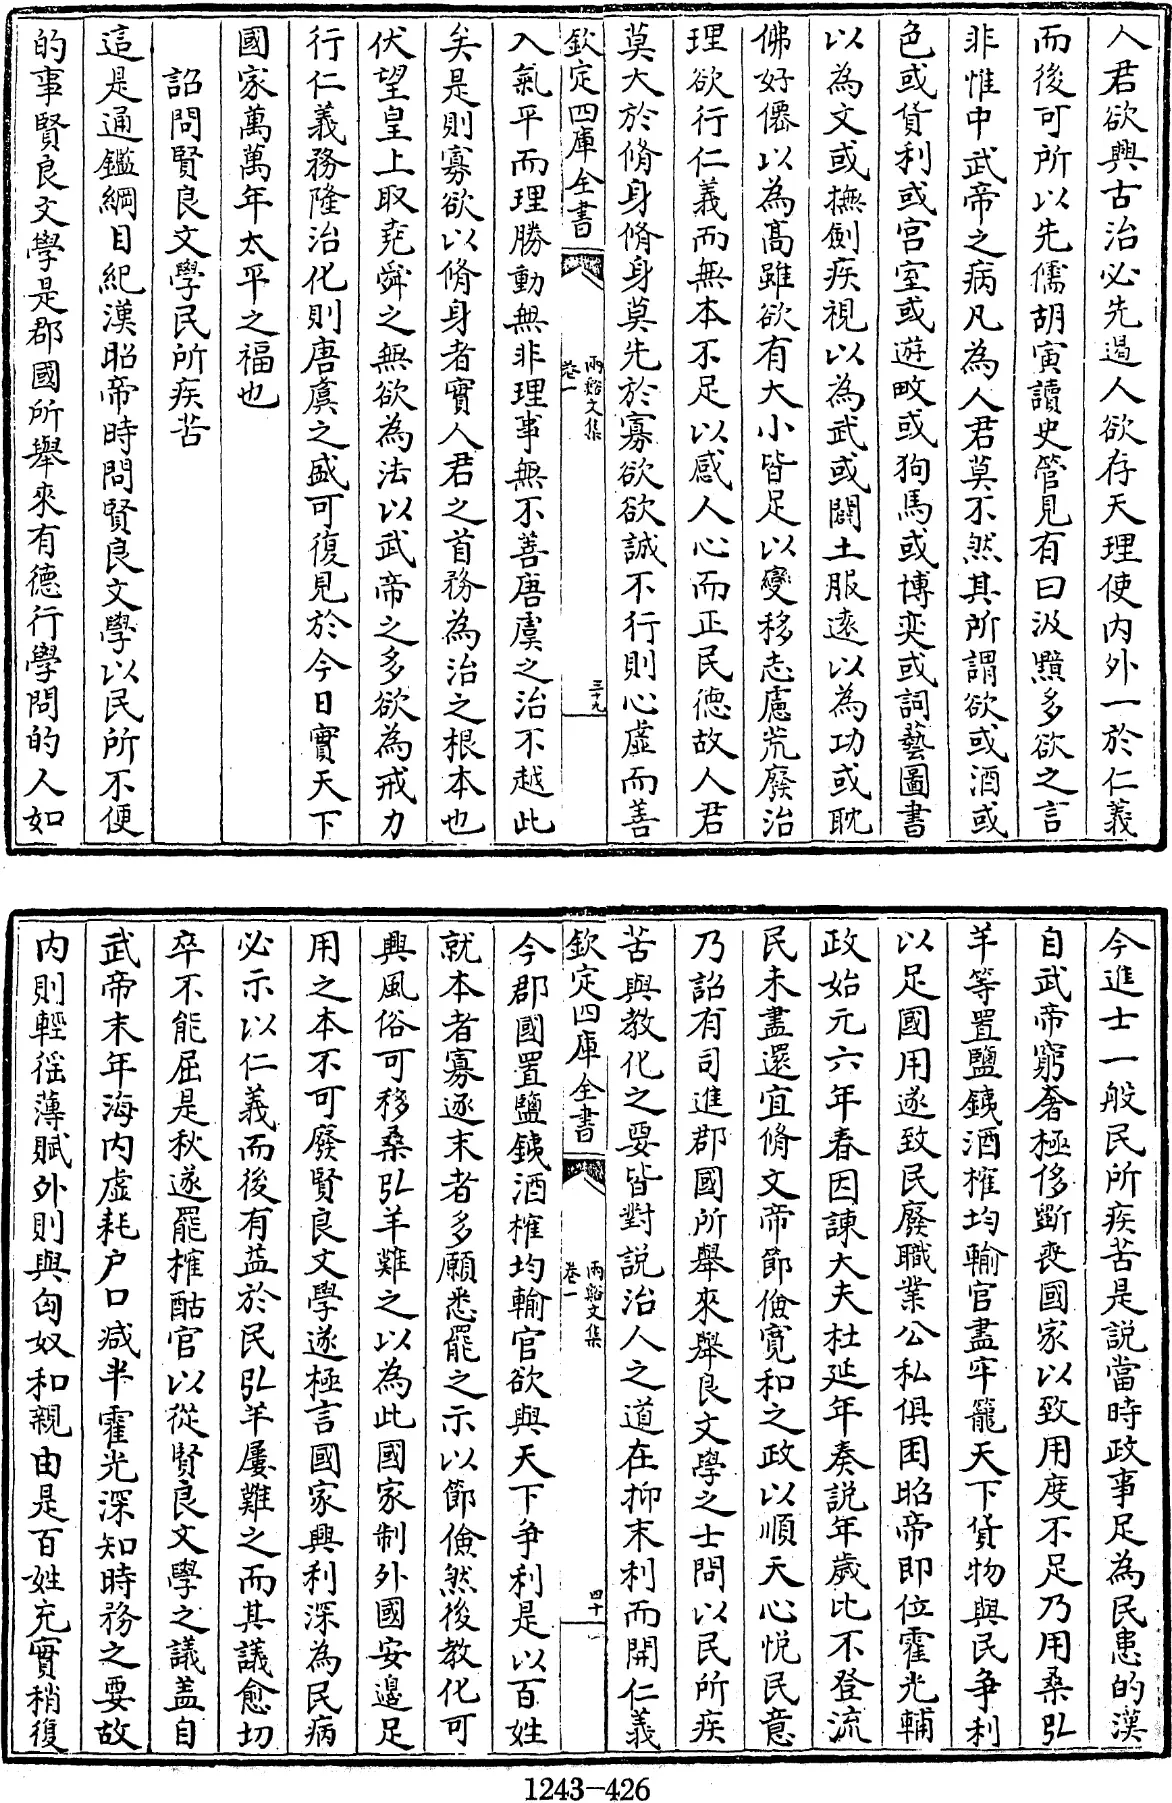 人君欲興古治必先遏人欲存天理使内外一於仁義
而後可所以先儒胡寅讀史管見有曰汲黯多欲之言
非惟中武帝之病凡為人君莫不然其所謂欲或酒或
色或貨利或宫室或遊畋或狗馬或博奕或詞藝圖書
以為文或撫劍疾視以為武或闢土服遠以為功或耽
佛好僊以為髙雖欲有大小皆足以變移志慮荒廢治
理欲行仁義而無本不足以感人心而正民德故人君
莫大於脩身脩身莫先於寡欲欲誠不行則心虚而善
欽定四庫全書
兩谿文集
卷一
三十九
入氣平而理勝動無非理事無不善唐虞之治不越此
矣是則寡欲以脩身者實人君之首務為治之根本也
伏望皇上取堯舜之無欲為法以武帝之多欲為戒力
行仁義務隆治化則唐虞之盛可復見於今日實天下
國家萬萬年太平之福也
詔問賢良文學民所疾苦
這是通鑑綱目紀漢昭帝時問賢良文學以民所不便
的事賢良文學是郡國所舉來有德行學問的人如
今進士一般民所疾苦是説當時政事足為民患的漢
自武帝窮奢極侈斵喪國家以致用度不足乃用桑弘
羊等置鹽鐵酒榷均輸官盡牢籠天下貨物與民爭利
以足國用遂致民廢職業公私俱困昭帝即位霍光輔
政始元六年春因諫大夫杜延年奏説年歲比不登流
民未盡還宜脩文帝節儉寛和之政以順天心悦民意
乃詔有司進郡國所舉來舉良文學之士問以民所疾
苦與教化之要皆對説治人之道在抑末利而開仁義
欽定四庫全書
兩谿文集
卷一
四十
今郡國置鹽鐵酒榷均輸官欲與天下争利是以百姓
就本者寡逐末者多願悉罷之示以節儉然後教化可
興風俗可移桑弘羊難之以為此國家制外國安邉足
用之本不可廢賢良文學遂極言國家興利深為民病
必示以仁義而後有益於民弘羊屢難之而其議愈切
卒不能屈是秋遂罷榷酤官以從賢良文學之議盖自
武帝末年海内虚耗户口減半霍光深知時務之要故
内則輕徭薄賦外則與匈奴和親由是百姓充實稍復
1243-426